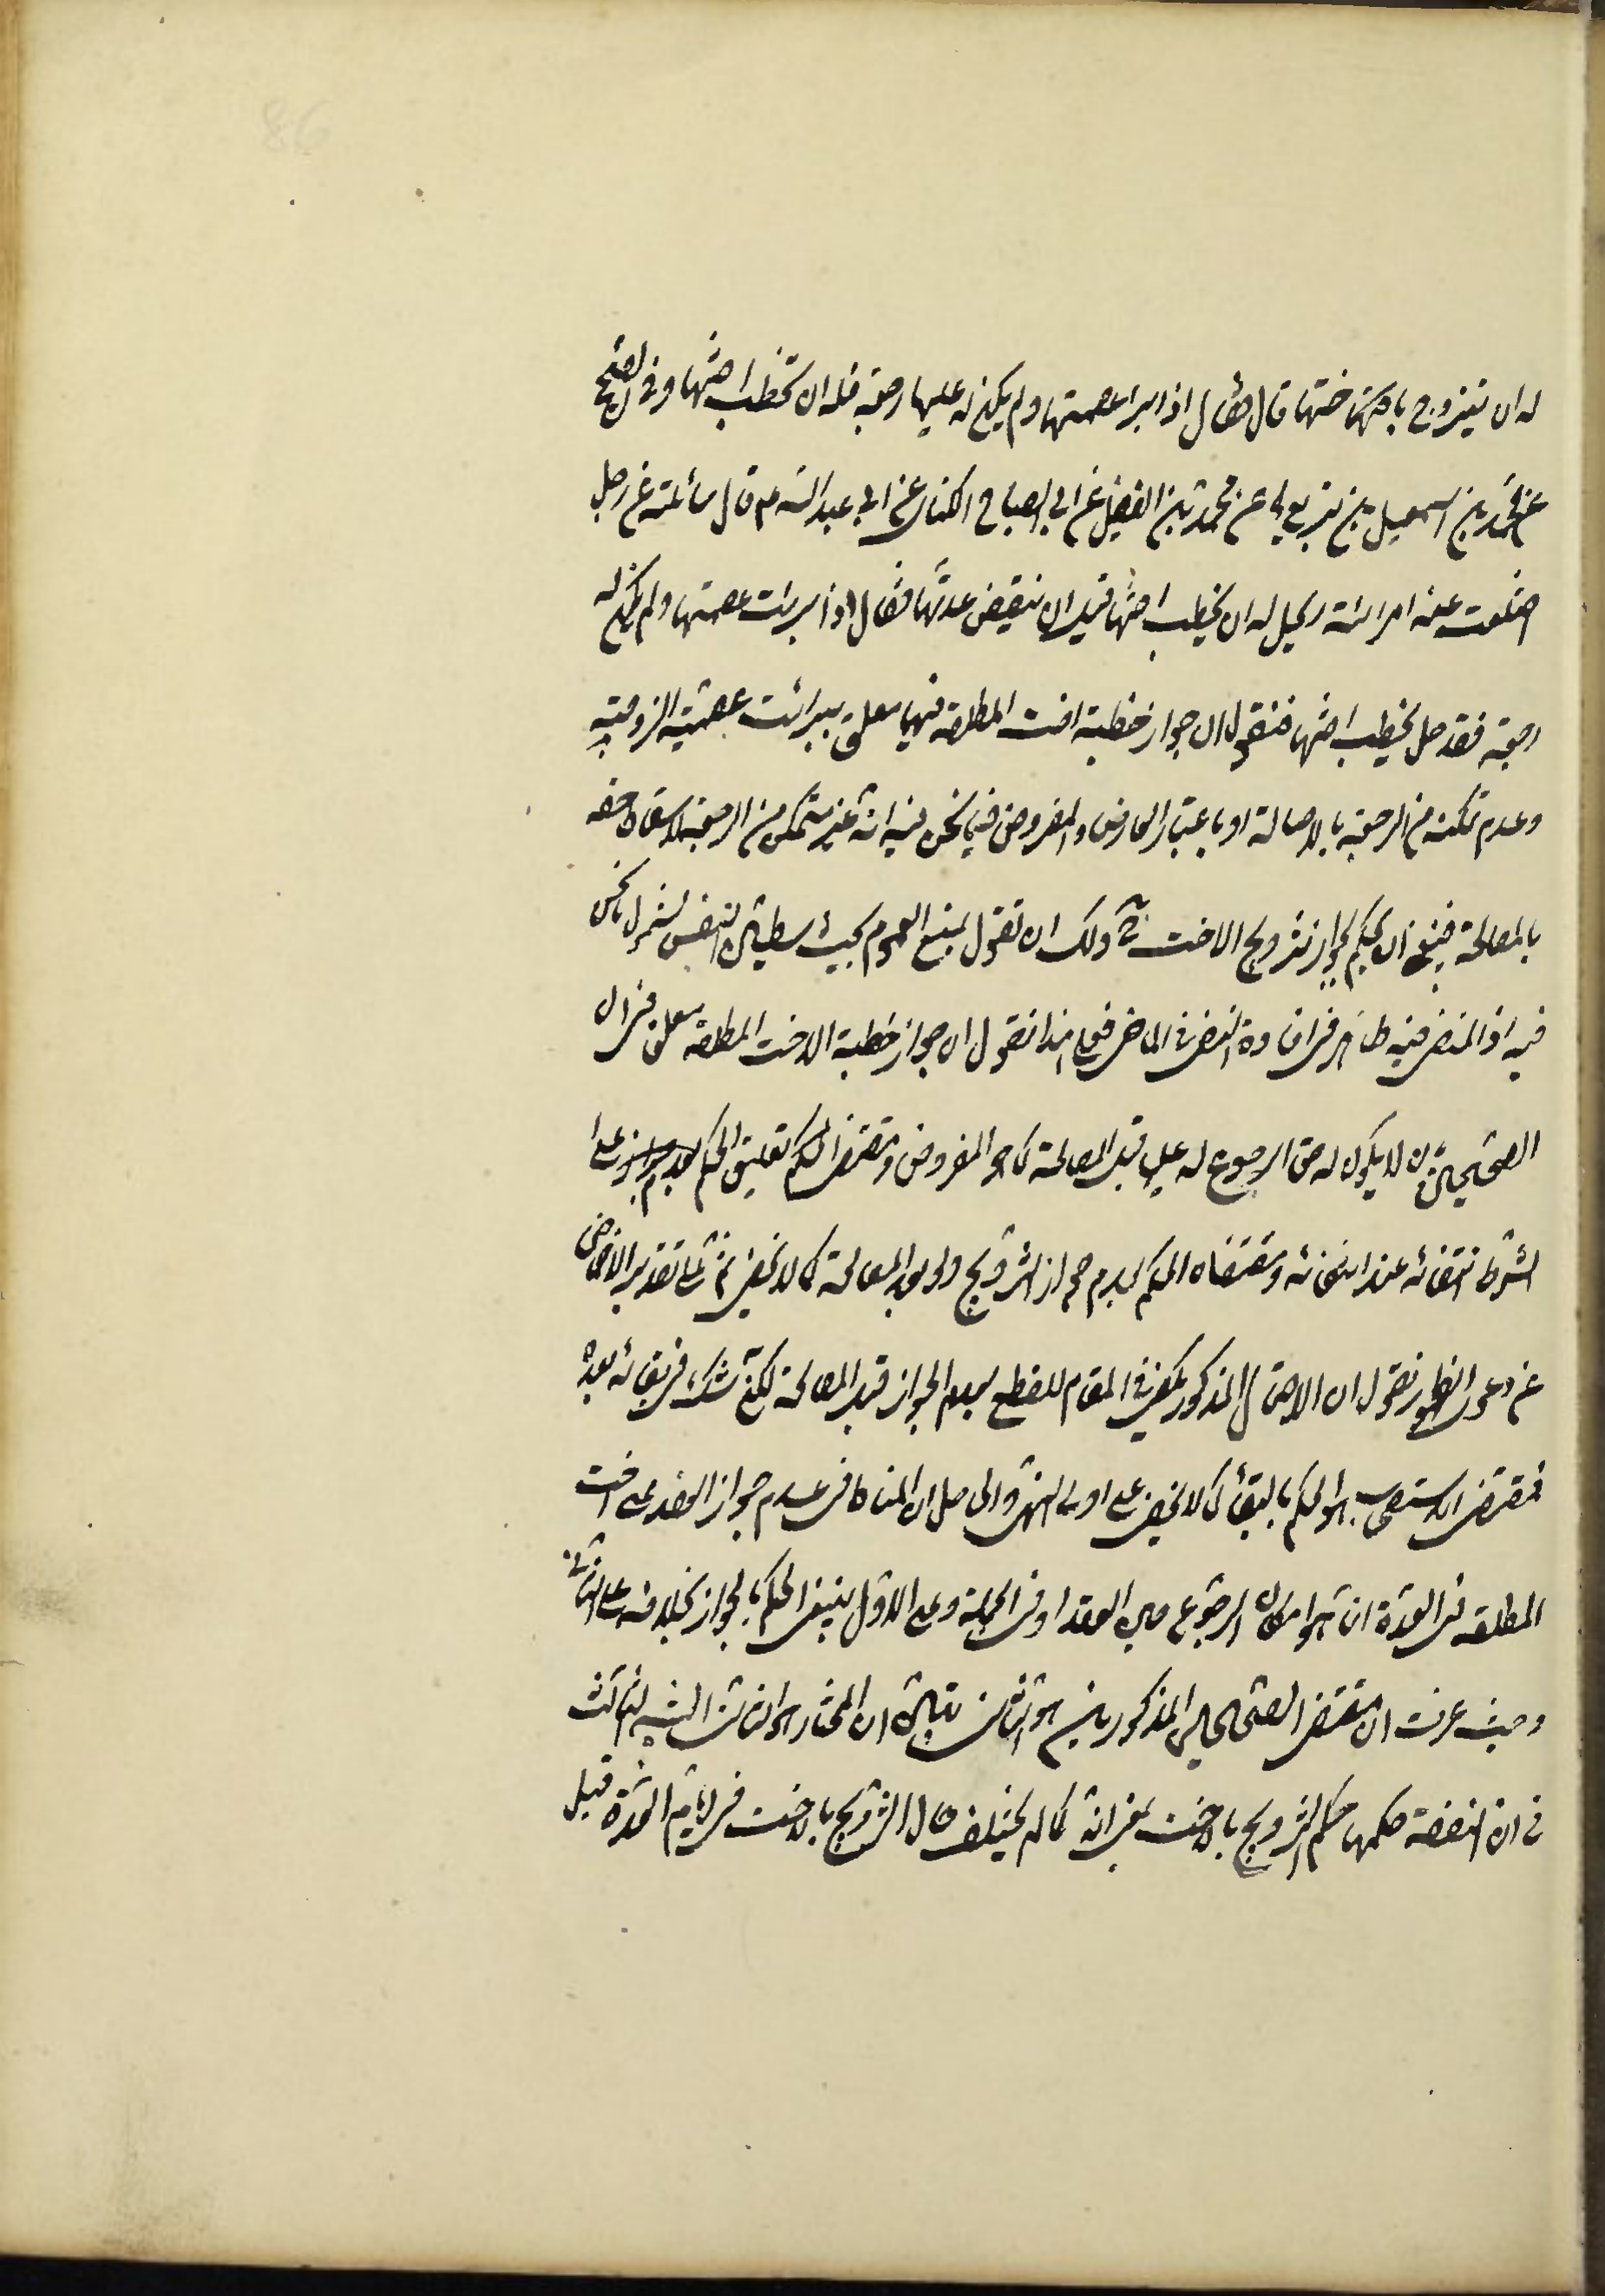 له ان يتزوج باختها قال فقال اذا برا عصمتها ولم يكن له عليها رجعة فله ان يخطب اختها وفى الصحيح
عن محمد بن اسمعيل بن بزيع عن محمد بن الفضيل عن ابى الصباح الكنانى عن ابى عبد الله ع قال سألته عن رجل
اختلعت عنه امرائته ايحل له ان يخطب اختها قبل ان ينقضى عدتها فقال اذا برئت عصمتها ولم يكن له
رجعة فقد حل يخطب اختها فنقول ان جواز خطبة اخت المطلقة فيهما معلق ببرائت عصمة الزوجية
وعدم تمكنه من الرجعة بالاصالة او باعتبار العارض والمفروض فيما نحن فيه انه غير متمكن من الرجعة لاسقاط حقه
بالمصالحة فينبغى ان يحكم بجواز تزويج الاخت ح ولك ان تقول بمنع العموم بحيث يطمئن النفس لشمول ما نحن
فيه اذ النص فيه ظاهر فى افادة النفى فى الماضى فعلى هذا نقول ان جواز خطبة الاخت المطلقة معلق فى ال
الصحيحين بان لا يكون له حق الرجوع له عليها قبل المصالحة كما هو المفروض ومقتضى الحكم تعليق الحكم على
الشرط انتفائه عند انتفائه ومقتضاه الحكم بعدم جواز التزويج ولو بعد المصالحة كما لا يخفى ثم على تقدير الاغماض
عن دعوى الظهور نقول ان الاحتمال المذكور يكفى فى المقام للقطع بعدم الجواز قبل المصالحة لكن نشك فى بقائه بعده
فمقتضى الاستصحاب هو الحكم بالبقاء كما لا يخفى على اولى النهى والحاصل ان المناط فى عدم جواز العقد على اخت
المطلقة فى العدة انما هو امكان الرجوع حين العقد او فى الجملة وعلى الاول ينبغى الحكم بالجواز بخلافه على الثانى
وحيث عرفت ان مقتضى الصحيحين المذكورين هو الثانى تبين ان المختار هو الثانى الثالث
فى ان النفقة حكمها حكم التزويج بالاخت بمعنى انه كما لم يختلف حال التزويج بالاخت فى ايام العدة قبل